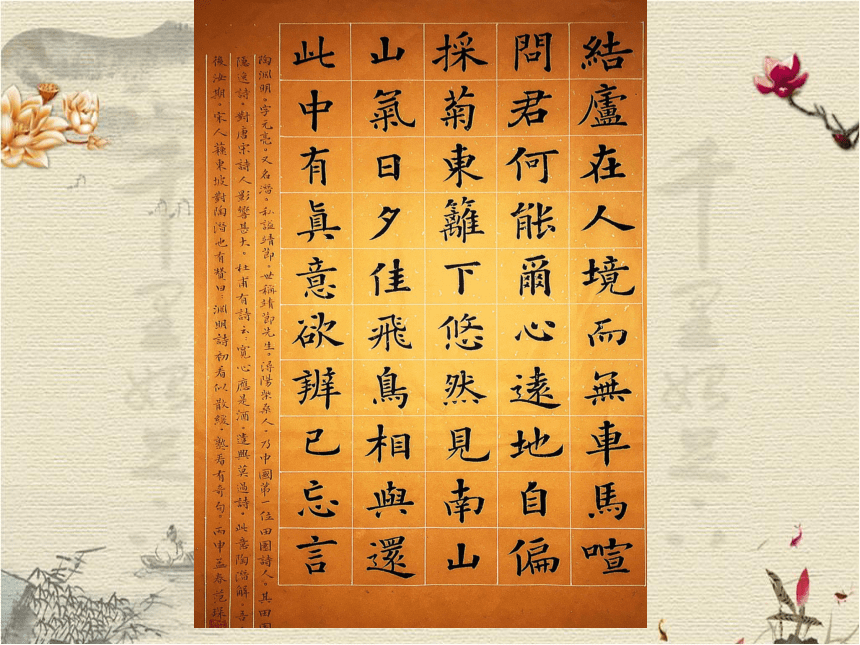 結廬在人境而無車馬喧
問君何能爾心遠地自偏
採菊東籬下悠然見南山
山氣日夕佳飛鳥相與還
此中有眞意欲辨已忘言
陶淵明。字元亮。又名潛。私謚靖節。世稱靖節先生。潯陽柴桑人。乃中國第一位田園詩人。其田園
隱逸詩。對唐宋詩人影響甚大。杜甫有詩云：寬心應是酒。遣興莫過詩。此意陶潛解。吾
後汝期。宋人蘇東坡對陶潛也有贊曰：淵明詩初看似散緩。熟看有奇句。丙申孟春范琛